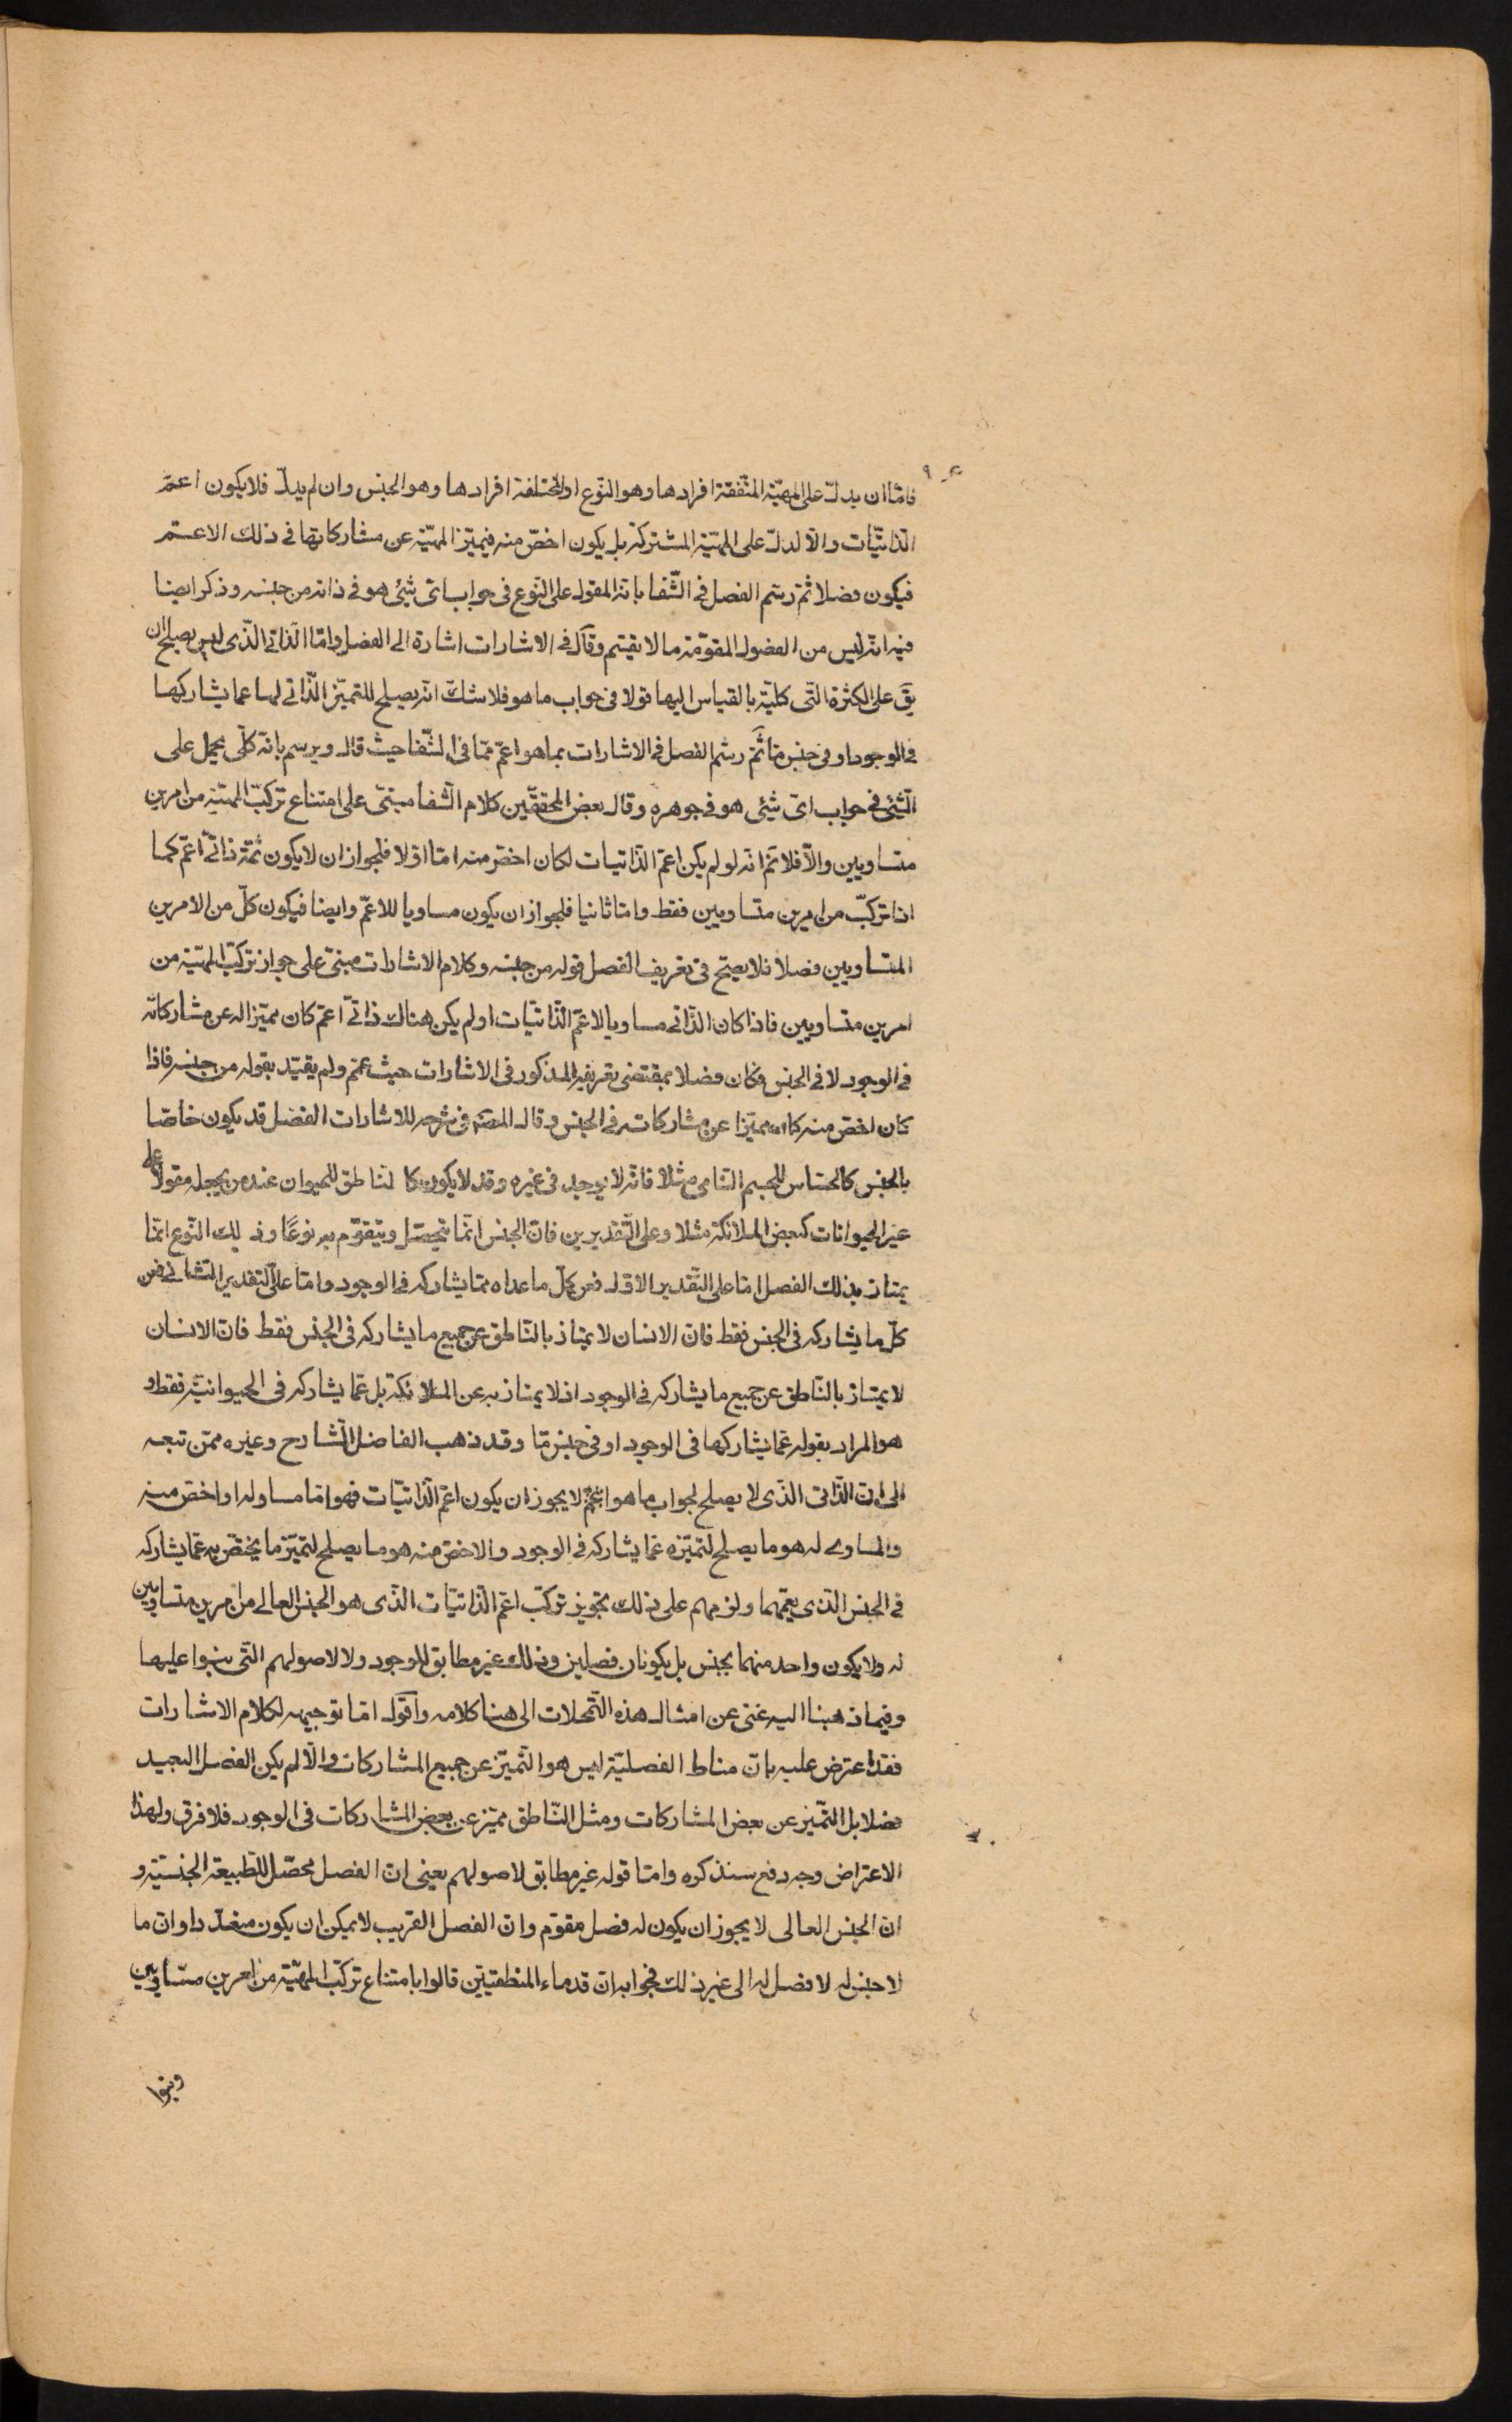 فامّا ان يدلّ على المهيّة المتّفقة افرادها وهو النّوع او المختلفة افرادها وهو الجنس وان لم يدلّ فلا يكون اعمّ
الذاتيّات والّا لدلّ على المهيّة المشتركة بل يكون اخصّ منه فيميّز المهيّة عن مشاركاتها فى ذلك الاعـمّ
فيكون فصلا ثمّ رسّم الفصل فى الشّفا بانه المقول على النّوع فى جواب اىّ شيئ هو فى ذاته من جنسه وذكر ايضا
فيه انّه ليس من الفصول المقوّمة ما لا يقسّم وقال فى الاشارات اشارة الى الفصل وامّا الذاتى الّذى ليس يصلح ان
يقَ على الكثرة الّتى كليّة بالقياس اليها قولا فى جواب ما هو فلا شكّ انّه يصلح للتميّز الذّاتى لها عما يشاركها
فى الوجود او فى جنس مّا ثمّ رسّم الفصل فى الاشارات بما هو اعمّ ممّا فى الشّفا حيث قال ويرسم بانّه كلّى يحمل على
الشّيئ فى جواب اىّ شيئ هو فى جوهره وقال بعض المحقّقين كلام الشّفا مبنىّ على امتناع تركّب المهيّة من امرين
متساويين والّا فلا تمّ انّه لو لم يكن اعمّ الذّاتيات لكان اخصّ منه امّا اوّلا فلجواز ان لا يكون ثمّة ذاتىّ اعمّ كما
اذا تركّب من امرين متساويين فقط وامّا ثانيا فلجواز ان يكون مساويا للاعمّ وايضا فيكون كلّ من الامرين
المتساويين فصلا فلا يصحّ فى تعريف الفصل قوله من جنسه وكلام الاشارات مبنىّ على جواز تركّب المهيّة من
امرين متساويين فاذا كان الذّاتى مساويا لاعمّ الذّاتيّات او لم يكن هناك ذاتىّ اعمّ كان مميّزا له عن مشاركاته
فى الوجود لا فى الجنس وكان فصلا بمقتضى تعريفه المذكور فى الاشارات حيث عمّم ولم يقيّد بقوله من جنسه فاذا
كان اخصّ منه كان مميّزا عن مشاركاته فى الجنس وقال المصَ فى شرحه للاشارات الفصل قد يكون خاصّا
بالجنس كالحسّاس للجسم النّامى مثلا فانّه لا يوجد فى غيره وقد لا يكون كالنّاطق للحيوان عند من يجعله مقولا على
غير الحيوانات كبعض الملائكة مثلا وعلى التّقديرين فانّ الجنس انّما يتحصّل ويتقوّم به نوعًا وذلك النّوع انّما
يمتاز بذلك الفصل امّا على التّقدير الاوّل فعن كلّ ما عداه ممّا يشاركه فى الوجود وامّا على التّقدير الثّانى فعن
كلّ ما يشاركه فى الجنس فقط فانّ الانسان لا يمتاز بالنّاطق عن جميع ما يشاركه فى الجنس فقط فانّ الانسان
لا يمتاز بالنّاطق عن جميع ما يشاركه فى الوجود اذ لا يمتاز به عن الملائكة بل عمّا يشاركه فى الحيوانيّة فقط و
هو المراد بقوله عمّا يشاركها فى الوجود او فى جنس مّا وقد ذهب الفاضل الشّارح وغيره ممّن تبعه
الى انّ الذّاتى الّذى لا يصلح لجواب ما هو لا يجوز ان يكون اعمّ الذّاتيّات فهو امّا مساو له او اخصّ منه
والمساوى له هو ما يصلح لتميّزه عمّا يشاركه فى الوجود والاخصّ منه هو ما يصلح لتميّز ما يختصّ به عمّا يشاركه
فى الجنس الّذى يعمّهما ولزمهم على ذلك تجويز تركّب اعمّ الذّاتيّات الّذى هو الجنس العالى من امرين متساويين
له ولا يكون واحد منهما بجنس بل يكونان فصلين وذلك غير مطابق للوجود ولا لاصولهم الّتى بنوا عليها
وفيما ذهبنا اليه غنى عن امثال هذه التّمحّلات الى هنا كلامه واَقول امّا توجيهه لكلام الاشارات
فقد اعترض عليه بانّ مناط الفصليّة ليس هو التّميّز عن جميع المشاركات والّا لم يكن الفصل البعيد
فصلا بل التّميّز عن بعض المشاركات ومثل النّاطق مميّز عن بعض المشاركات فى الوجود فلا فرق ولهذا
الاعتراض وجه دفع سنذكره وامّا قوله غير مطابق لاصولهم يعنى انّ الفصل محصّل للطّبيعة الجنسيّة و
انّ الجنس العالى لا يجوز ان يكون له فصل مقوّم وانّ الفصل القريب لا يمكن ان يكون متعدّدا وانّ ما
لا جنس له لا فصل له الى غير ذلك فجوابه انّ قدماء المنطقيّين قالوا بامتناع تركّب المهيّة من امرين متساويين
وبنوا